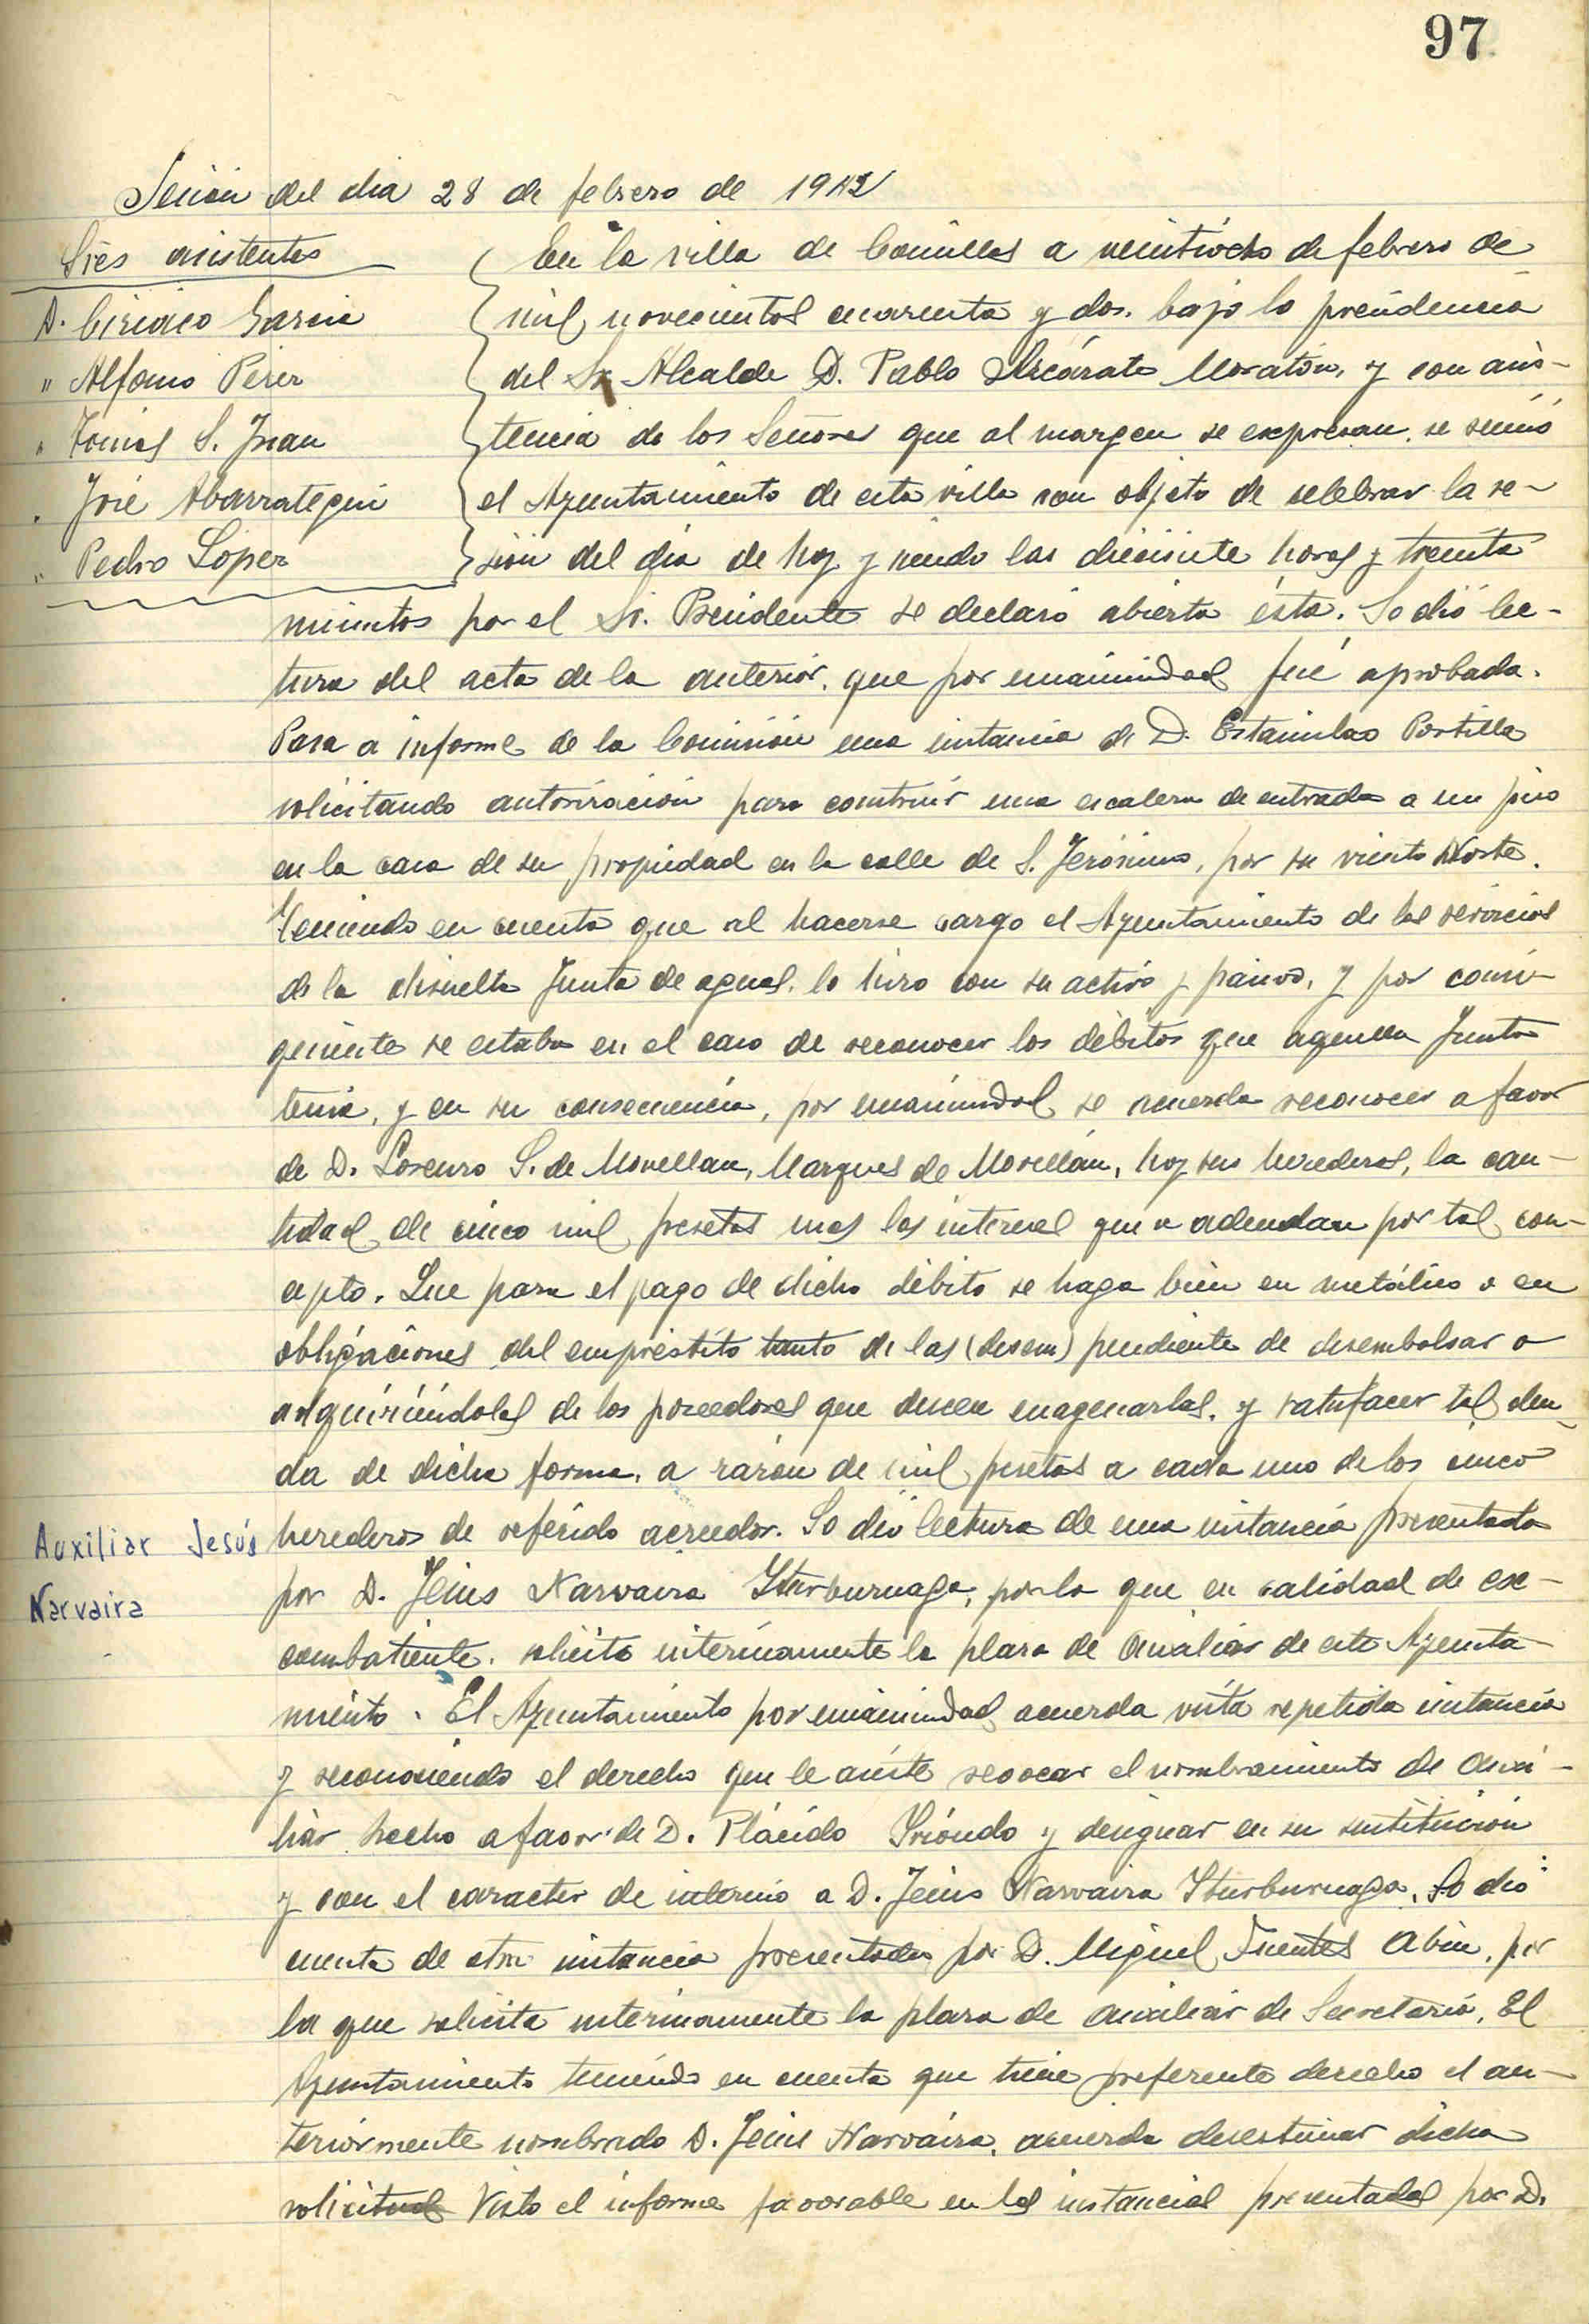 97
Sesión del dia 28 de febrero de 1942
Sres asistentes
D. Ciriaco Garcia
" Alfonso Perez
" Tomas S. Juan
" José Abarrategui
" Pedro Lopez
En la villa de Comillas a veintiocho de febrero de
mil novecientos cuarenta y dos. bajo la presidencia
del Sr Alcalde D. Pablo Azcárate Moratón, y con asis-
tencia de los Señores que al margen se expresan, se reunió
el Ayuntamiento de esta villa con objeto de celebrar la se-
sión del día de hoy y siendo las diecisiete horas y treinta
minutos por el Sr. Presidente se declaró abierta ésta. Se dió lec-
tura del acta de la anterior, que por unanimidad fué aprobada.
Pasa a informe de la Comisión una instancia de D. Estanislao Portilla
solicitando autorización para construir una escalera de entrada a un piso
en la casa de su propiedad en la calle de S. Jerónimo, por su viento Norte.
Teniendo en cuenta que al hacerse cargo el Ayuntamiento de los servicios
de la disuelta Junta de aguas, lo hizo con su activo y pasivo, y por consi-
guiente se estaba en el caso de reconocer los débitos que aquella Junta
tenia, y en su consecuencia, por unanimidad se acuerda reconocer a favor
de D. Lorenzo S. de Movellan, Marques de Movellán, hoy sus herederos, la can-
tidad de cinco mil pesetas mas los intereses que se adeudan por tal con-
cepto. Que para el pago de dicho débito se haga bien en metálico o en
obligaciones del empréstito tanto de las (desem) pendiente de desembolsar o
adquiriéndolas de los poseedores que deseen enagenarlas, y satisfacer tal deu-
da de dicha forma, a razón de mil pesetas a cada uno de los cinco
Auxiliar Jesús
Narvaiza
herederos de referido acreedor. Se dió lectura de una instancia presentada
por D. Jesus Narvaiza Yturburuaga, por la que en calidad de ex-
combatiente, solicita interinamente la plaza de Auxiliar de este Ayunta-
miento. El Ayuntamiento por unanimidad acuerda vista repetida instancia
y reconociendo el derecho que le asiste revocar el nombramiento de Auxi-
liar hecho a favor de D. Plácido Yriondo y designar en su sustitución
y con el caracter de interino a D. Jesus Narvaiza Yturburuaga. Se dió
cuenta de otra instancia presentada por D. Miguel Fuentes Abin, por
la que solicita interinamente la plaza de auxiliar de Secretaria. El
Ayuntamiento teniendo en cuenta que tiene preferente derecho el an-
teriormente nombrado D. Jesus Narvaiza, acuerda desestimar dicha
solicitud Visto el informe favorable en las instancias presentadas por D.